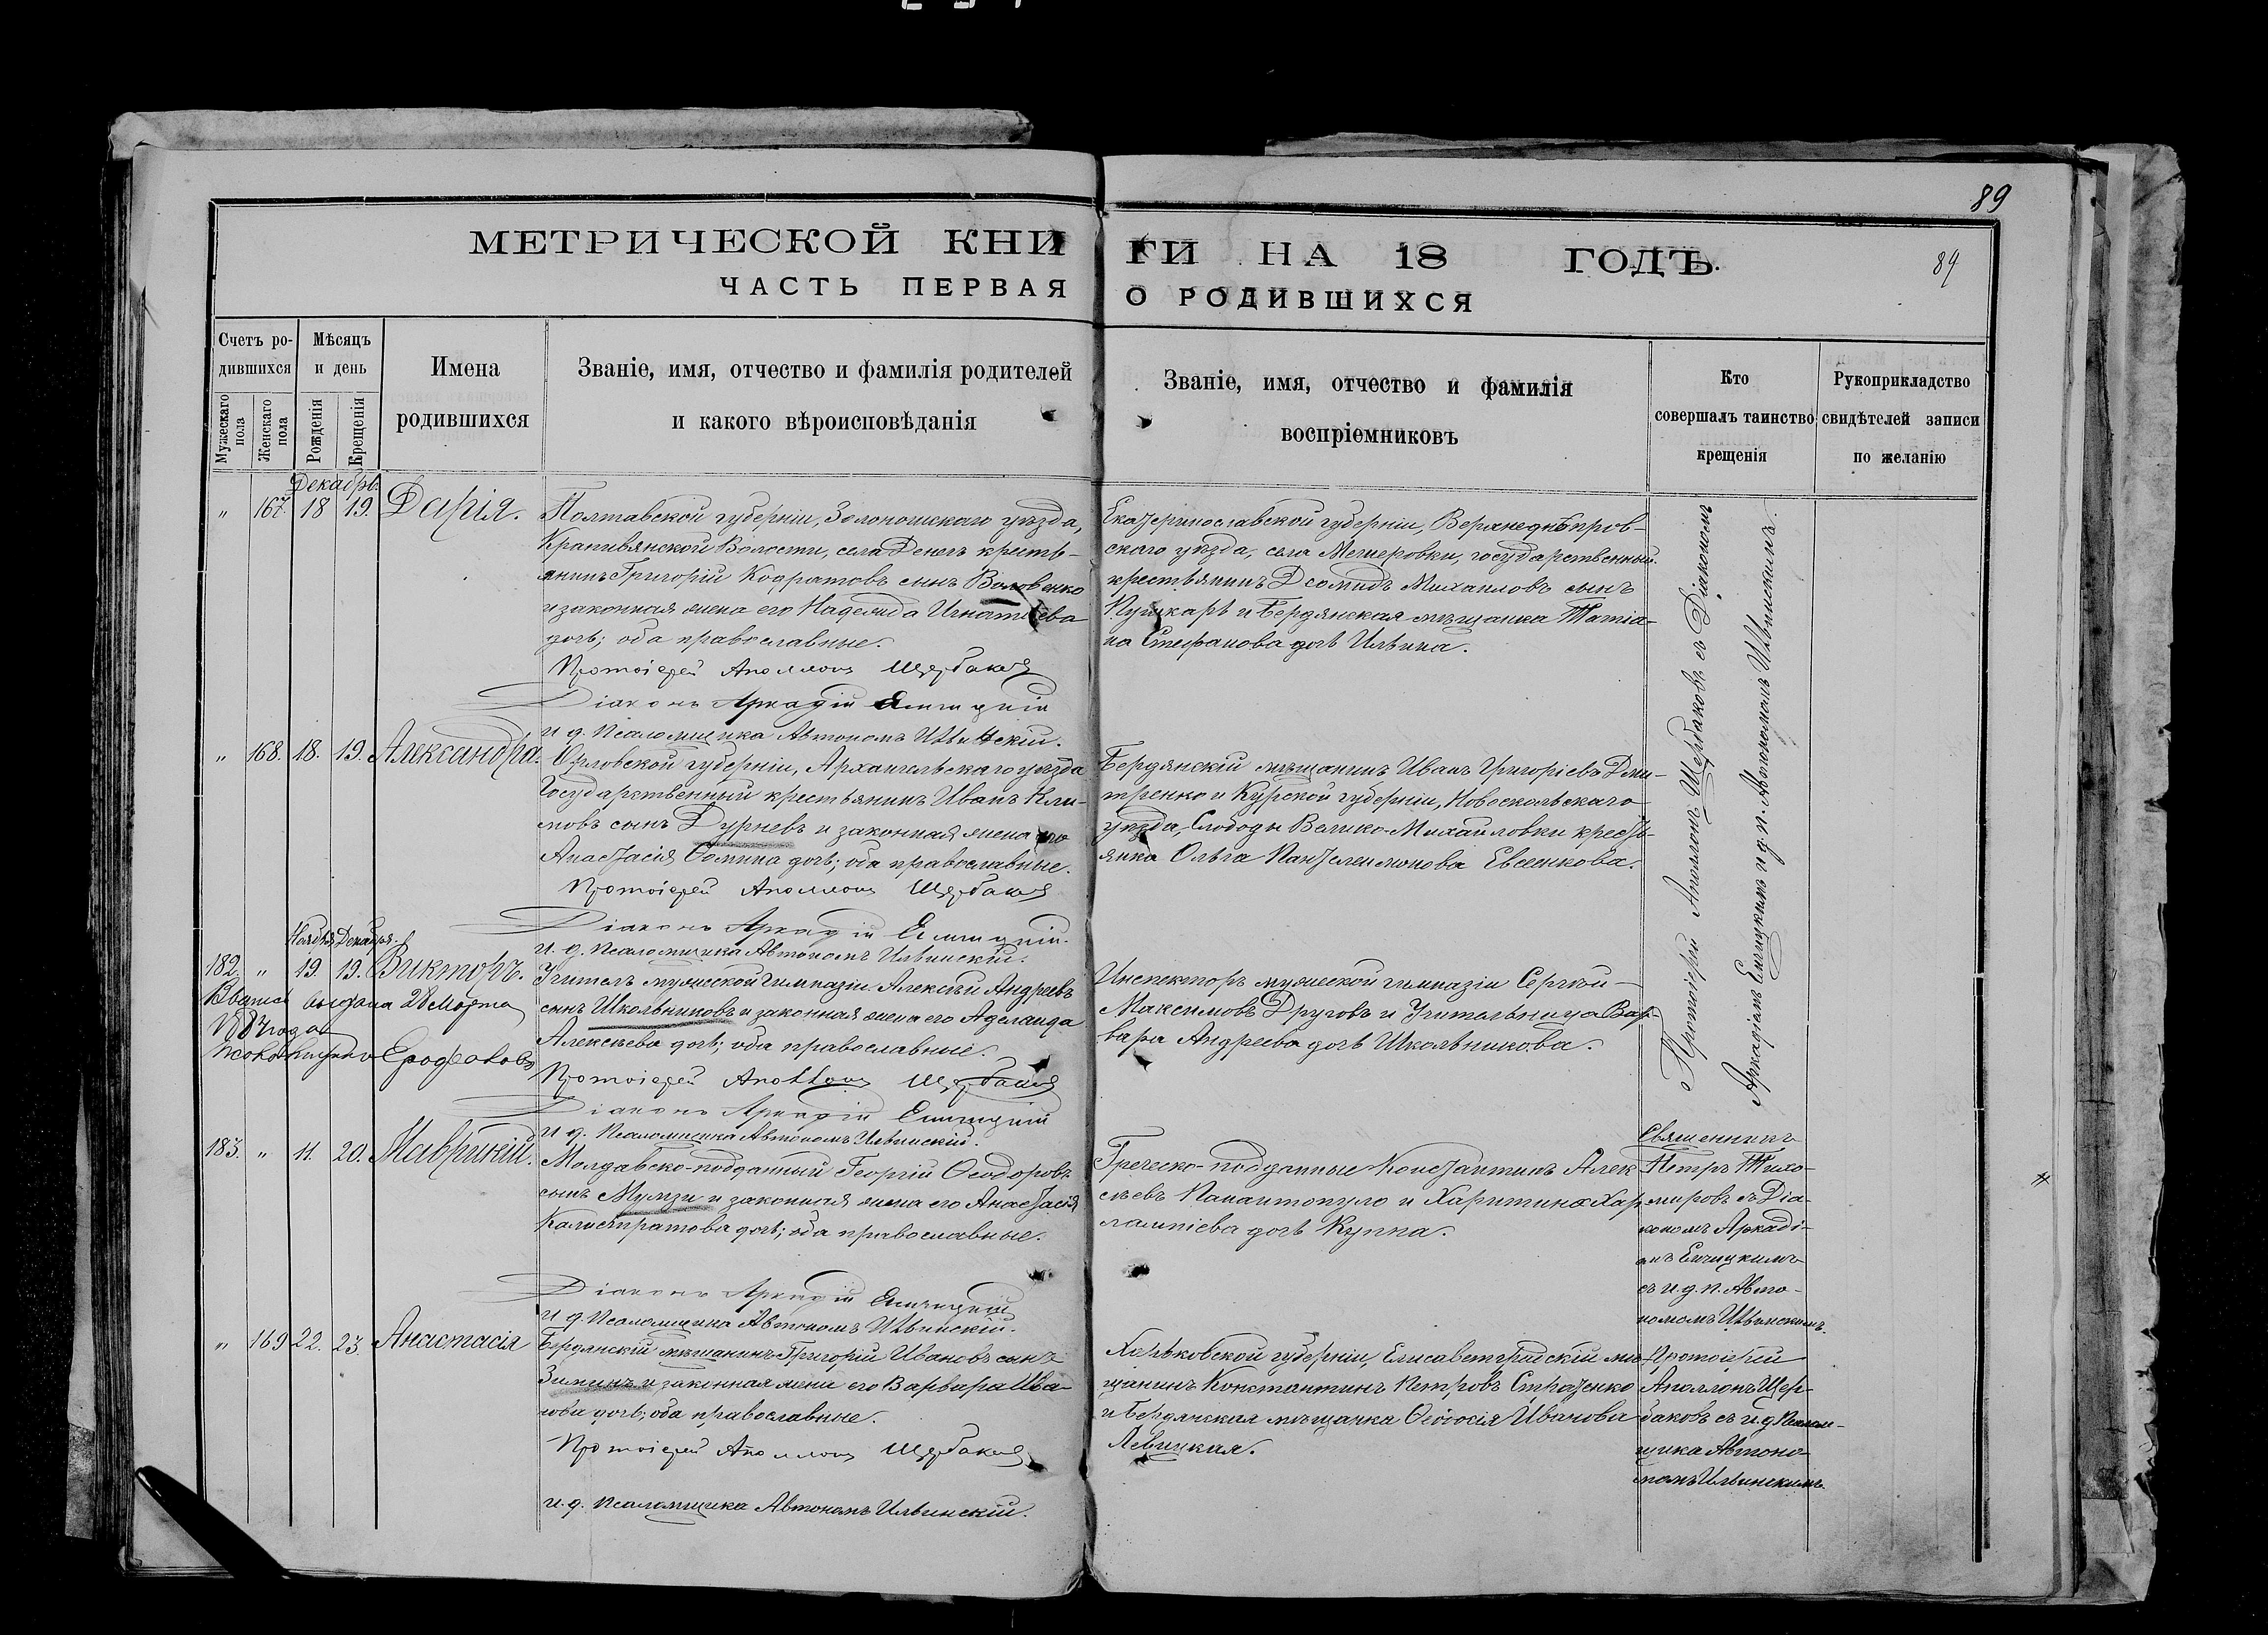 89
МЕТРИЧЕСКОЙ КНИ
ГИ НА 18 ГОДЪ.
89
ЧАСТЬ ПЕРВАЯ
О РОДИВШИХСЯ
Счетъ ро-
дившихся
Мужескаго пола
Женскаго пола
Мѣсяцъ
и день
Рожденія
Крещенія
Имена
родившихся
Званіе, имя, отчество и фамилія родителей
и какого вѣроисповѣданія
Званіе, имя, отчество и фамилія
воспріемниковъ
Кто
совершалъ таинство
крещенія
Рукоприкладство
свидѣтелей записи
по желанію
Декабрь.
" 167. 18 19. Дарія.
Полтавской губерніи, Золоношскаго уѣзда,
Крапивянской Волости, села Денегъ кресть-
янинъ Григорій Кодратовъ сынъ Воловенко
и законная жена его Надежда Игнатьева
дочь; оба православные.
Протоіерей Аполлонъ Щербаковъ
Діаконъ Аркадій Емчицкій
и д. Псаломщика Автономъ Ильинскій.
Екатеринославской губерніи, Верхнеднѣпров-
скаго уѣзда, села Мешеровки, государственный
крестьянинъ Діомидъ Михаиловъ сынъ
Пушкарь и Бердянская мѣщанка Татіа-
на Стефанова дочь Ильина.
Протоіерей Аполлонъ Щербаковъ съ Діакономъ
Аркадіемъ Емчицкимъ и д. п. Автономомъ Ильинскимъ.
" 168. 18. 19. Александра.
Орловской губерніи, Архангельскаго уѣзда
Государственный крестьянинъ Иванъ Кли-
мовъ сынъ Дурневъ и законная жена его
Анастасія Ѳомина дочь; оба православные.
Протоіерей Аполлонъ Щербаковъ
Діаконъ Аркадій Емчицкій.
и. д. Псаломщика Автономъ Ильинскій.
Бердянскій мѣщанинъ Иванъ Григорьевъ Дми-
тренко и Курской губерніи, Новооскольскаго
уѣзда, Слободы Велико-Михайловки кресть-
янка Ольга Пантелеимонова Евсенкова.
Ноября Декабря
182. " 19. 19. Викторъ.
выдана 28 Марта
1887 года
Учитель мужеской гимназіи Алексѣй Андреевъ
сынъ Школьниковъ и законная жена его Аделаида
Алексѣева дочь; оба православные.
Протоіерей Аполлонъ Щербаковъ
Діаконъ Аркадій Емчицкій
и д. Псаломщика Автономъ Ильинскій.
Инспекторъ мужеской гимназіи Сергѣй
Максимовъ Друговъ и Учительница Вар-
вара Андреева дочь Школьникова.
183. " 11. 20. Маврикій.
Молдавско-подданный Георгій Ѳеодоровъ
сынъ Мумзи и законная жена его Анастасія
Калистратова дочь; оба православные.
Діаконъ Аркадій Емчицкій
и д. Псаломщика Автономъ Ильинскій.
Греческо-подданные Константинъ Алек-
сѣевъ Папантопуло и Харитина Хар-
лампіева дочь Куппа.
Священникъ
Петръ Тихо-
мировъ съ Діа-
кономъ Аркаді-
емъ Емчицкимъ
съ и. д. п. Авто-
номомъ Ильинскимъ.
" 169 22. 23. Анастасія
Бердянскій мѣщанинъ Григорій Ивановъ сынъ
Зиминъ и законная жена его Варвара Ива-
нова дочь; оба православные.
Протоіерей Аполлонъ Щербаковъ
и. д. Псаломщика Автономъ Ильинскій.
Харьковской губерніи, Елисаветградскій мѣ-
щанинъ Константинъ Петровъ Страженко
и Бердянская мѣщанка Ѳеодосія Иванова
Левицкая.
Протоіерей
Аполлонъ Щер-
баковъ съ и. д. Псалом-
щика Автоно-
момъ Ильинскимъ.